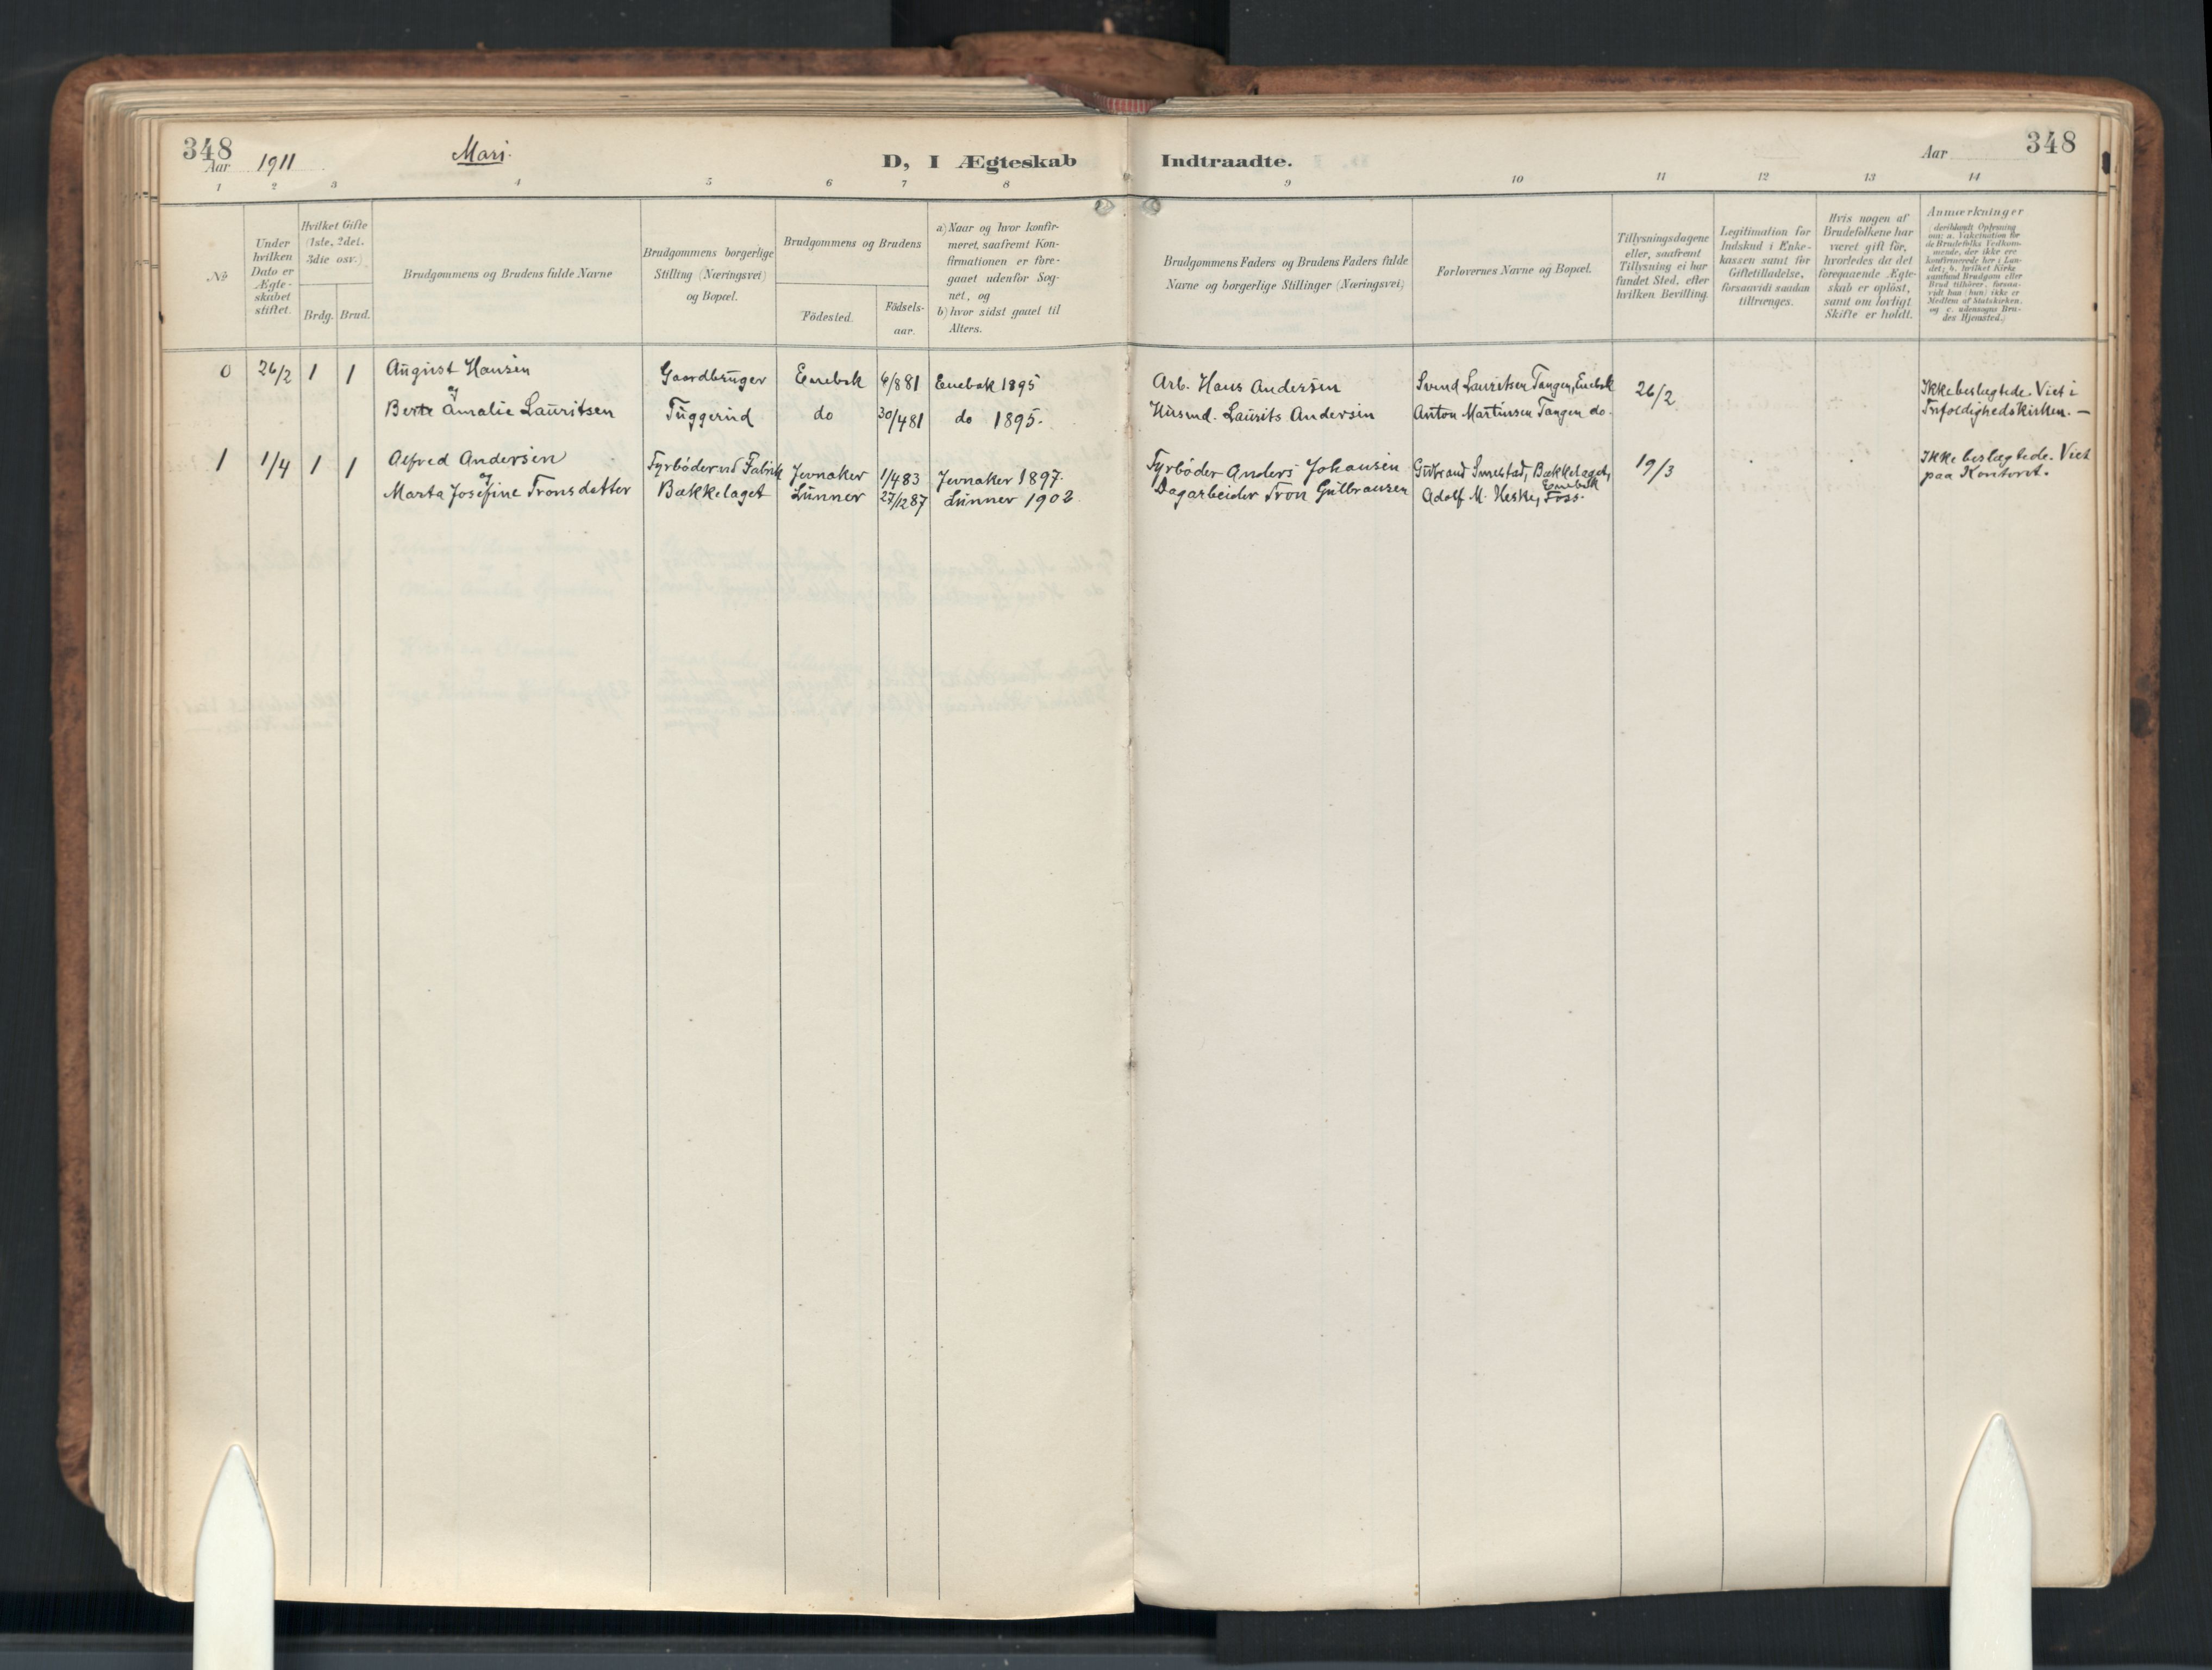 348
Aar 1911
Mari.
D, I Ægteskab Indtraadte.
Aar
348
1 2 3 4 5 6 7 8 9 10 11 12 13 14
Nr.
Under hvilken Dato er Ægte-skabet stiftet.
Hvilket Gifte (1ste, 2det, 3die osv.)
Brdg. Brud.
Brudgommens og Brudens fulde Navne
Brudgommens borgerlige Stilling (Næringsvei) og Bopæl.
Brudgommens og Brudens
Födested.
Födsels-aar.
a) Naar og hvor konfir-meret, saafremt Kon-firmationen er fore-gaaet udenfor Sog-net, og
b) hvor sidst gaaet til Alters.
Brudgommens Faders og Brudens Faders fulde Navne og borgerlige Stillinger (Næringsvei)
Forlovernes Navne og Bopæl.
Tillysningsdagene eller, saafremt Tillysning ei har fundet Sted, efter hvilken Bevilling.
Legitimation for Indskud i Enke-kassen samt for Giftetilladelse, forsaavidt saadan tiltrænges.
Hvis nogen af Brudefolkene har været gift för, hvorledes da det foregaaende Ægte-skab er oplöst, samt om lovligt Skifte er holdt.
Anmærkninger (deriblandt Oplysning om: a. Vakcination for de Brudefolks Vedkom-mende, der ikke ere konfirmerede her i Lan-det; b. hvilket Kirke-samfund Brudgom eller Brud tilhörer, forsaa-vidt han (hun) ikke er Medlem af Statskirken, og c. udensogns Bru-des Hjemsted.)
0 26/2 1 1 August Hansen Gaardbruger Enebak 6/881 Enebak 1895 Arb. Hans Andersen Svend Lauritsen Tangen, Enebak 26/2 Ikke beslægtede. Viet i
og
Berte Amalie Lauritsen Tuggerud do 30/481 do 1895. Husmd. Laurits Andersen Anton Martinsen Tangen do. Trefoldighedskirken. —
1 1/4 1 1 Alfred Andersen Fyrböder ved Fabrik Jevnaker 1/483 Jevnaker 1897. Fyrböder Anders Johansen Gulbrand Smestad, Bækkelaget, 19/3 Ikke beslægtede. Viet
og
Marta Josefine Tronsdatter Bækkelaget Lunner 27/1287 Lunner 1902 Dagarbeider Tron Gulbransen Adolf M. Heske, Foss. Enebak paa Kontoret.